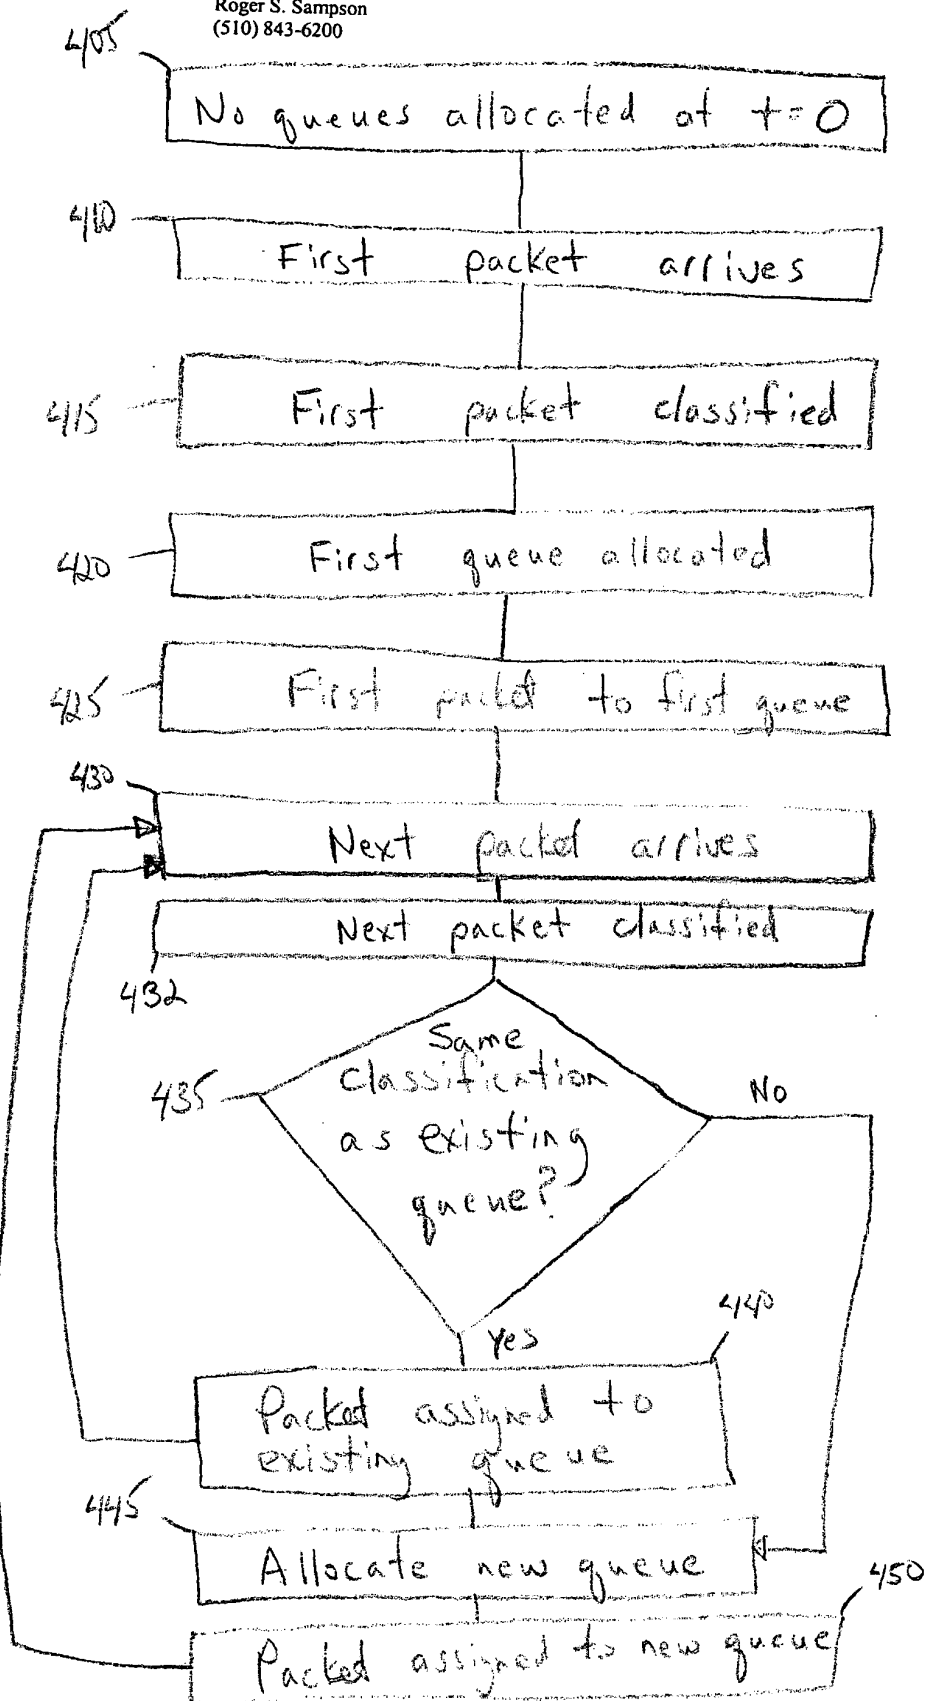 Roger S. Sampson
(510) 843-6200
405
No queues allocated at t=0
410
First packet arrives
415
First packet classified
420
First queue allocated
425
First packet to first queue
430
Next packet arrives
Next packet classified
432
435
Same
classification
as existing
queue?
No
Yes
440
Packet assigned to
existing queue
445
Allocate new queue
450
Packet assigned to new queue